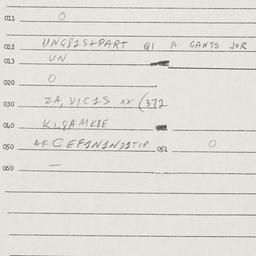 011 0
012 UNG81S+PART Q1 A GANTS JOR
013 UN
020 0
030 ZA, VIC1S xx (372
040 KL8AMKBE
050 AF CEF1N1ND1TIP 051 0
060 —